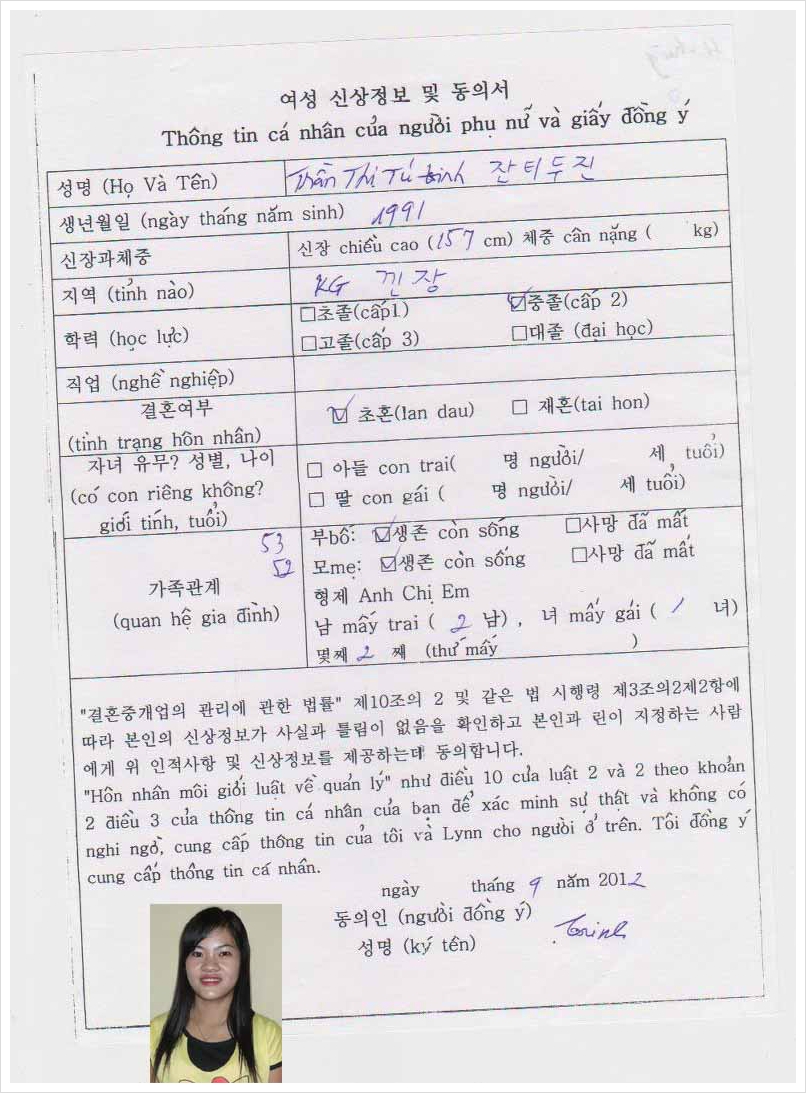 여성 신상정보 및 동의서
Thông tin cá nhân của người phụ nữ và giấy đồng ý
성명 (Họ Và Tên) Trần Thị Tú trinh 잔티두진
생년월일 (ngày tháng năm sinh) 1991
신장과체중 신장 chiều cao (157 cm) 체중 cân nặng ( kg)
지역 (tỉnh nào) KG 낀장
학력 (học lực) □초졸(cấp1) ☑중졸(cấp 2)
□고졸(cấp 3) □대졸 (đại học)
직업 (nghề nghiệp)
결혼여부
(tình trạng hôn nhân) ☑ 초혼(lan dau) □ 재혼(tai hon)
자녀 유무? 성별, 나이
(có con riêng không?
giới tính, tuổi)
□ 아들 con trai( 명 người/ 세 tuổi)
□ 딸 con gái ( 명 người/ 세 tuổi)
가족관계
(quan hệ gia đình)
53 부bố: ☑생존 còn sống □사망 đã mất
52 모mẹ: ☑생존 còn sống □사망 đã mất
형제 Anh Chị Em
남 mấy trai ( 2 남) , 녀 mấy gái ( 1 녀)
몇째 2 째 (thứ mấy )
"결혼중개업의 관리에 관한 법률" 제10조의 2 및 같은 법 시행령 제3조의2제2항에
따라 본인의 신상정보가 사실과 틀림이 없음을 확인하고 본인과 린이 지정하는 사람
에게 위 인적사항 및 신상정보를 제공하는데 동의합니다.
"Hôn nhân môi giới luật về quản lý" như điều 10 của luật 2 và 2 theo khoản
2 điều 3 của thông tin cá nhân của bạn để xác minh sự thật và không có
nghi ngờ, cung cấp thông tin của tôi và Lynn cho người ở trên. Tôi đồng ý
cung cấp thông tin cá nhân.
ngày tháng 9 năm 2012
동의인 (người đồng ý)
성명 (ký tên) trinh